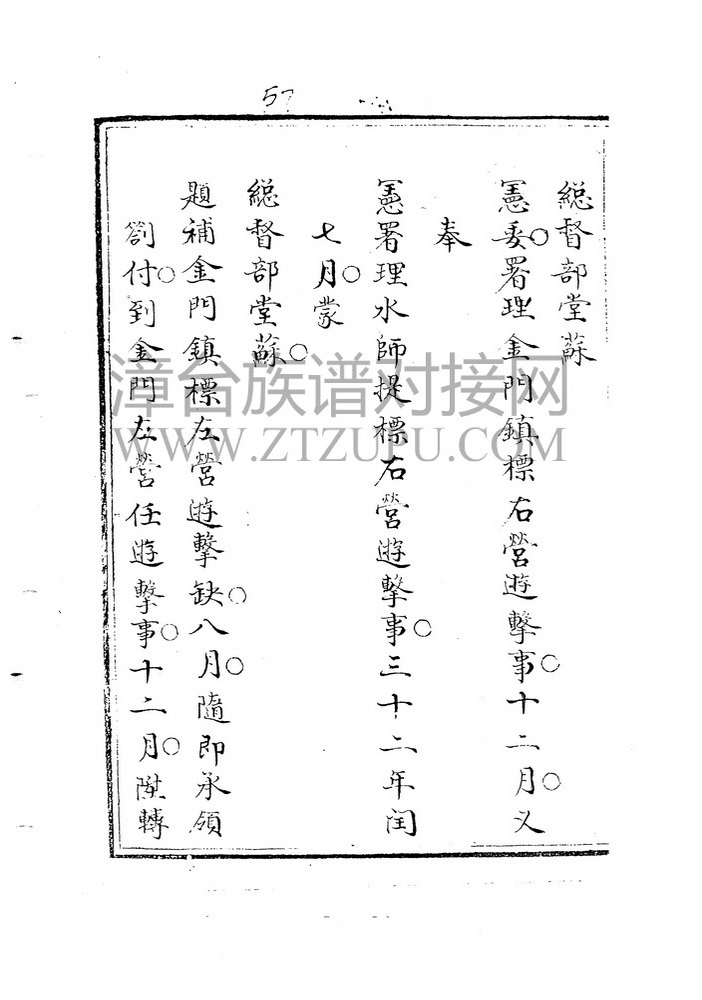 57
總督部堂蘇
憲委○署理金門鎮標右營遊擊事○十二月○义
奉
憲署理水師提標右營遊擊事○三十二年閏
七月○蒙
總督部堂蘇○
題補金門鎮標左營遊擊缺○八月○隨即承領
劄付○到金門左營任遊擊事○十二月○陞轉
漳台族谱对接网
WWW.ZTZUPU.COM